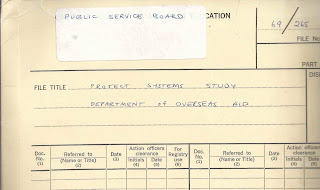 PUBLIC SERVICE BOARD
CATION
69 / 265
FILE No
PART
DIS
FILE TITLE PROJECT SYSTEMS STUDY
DEPARTMENT of OVERSEAS AID
Doc. No. (1) Referred to (Name or Title) (2) Date (3) Action officers clearance Initials (4) Date (5) For Registry use (6) Doc. No. (1) Referred to (Name or Title) (2) Date (3) Action officers clearance Initials (4) Date (5)